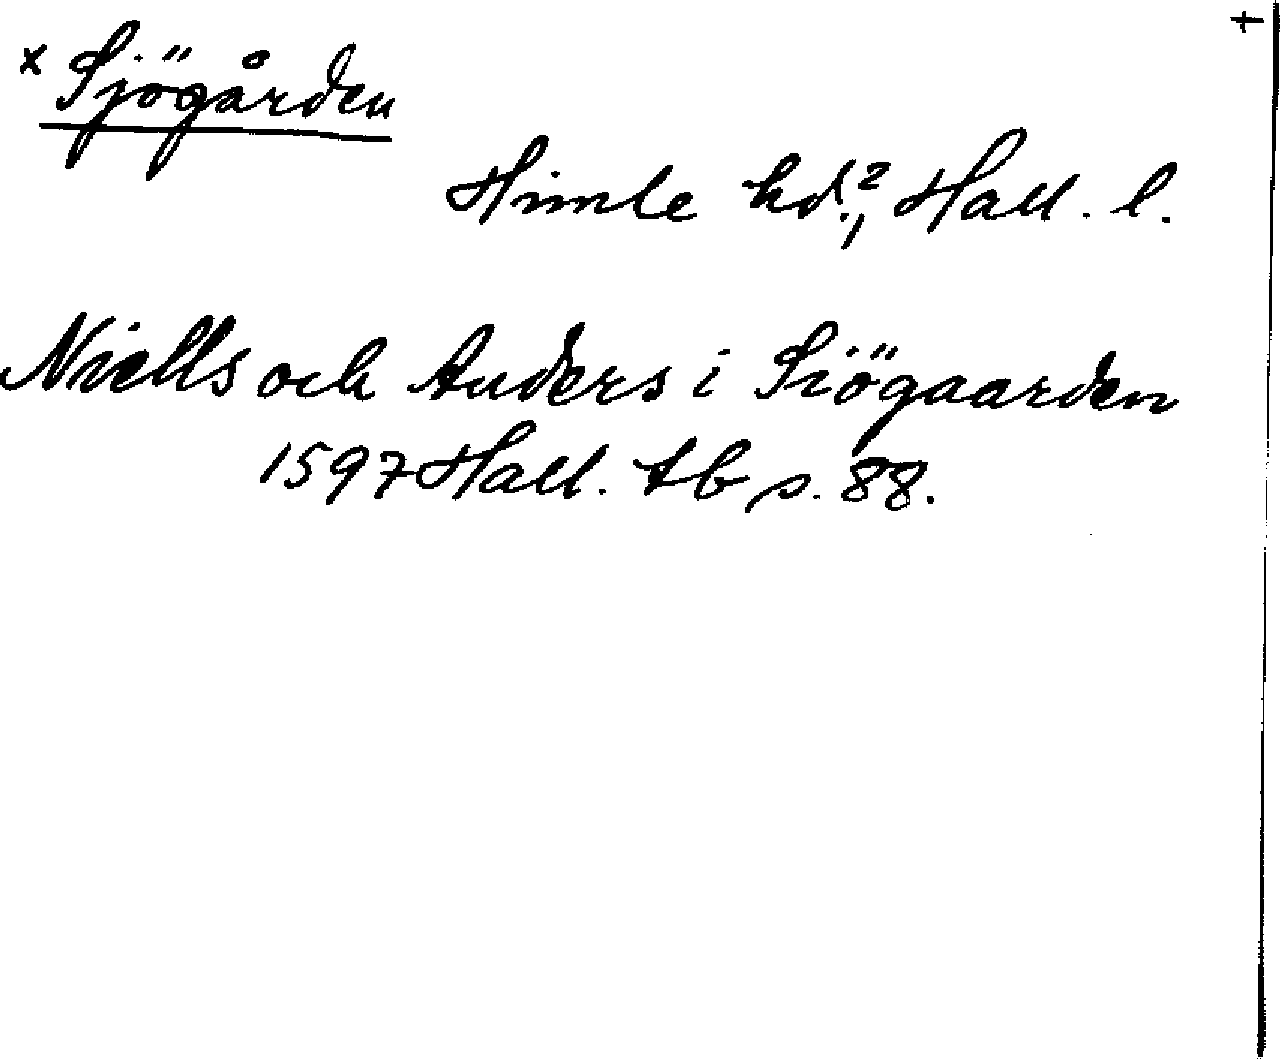 x Sjögården
†
Himle hd.?, Hall. l.
Niells och Anders i Siögaarden
1597 Hall. tb s. 88.